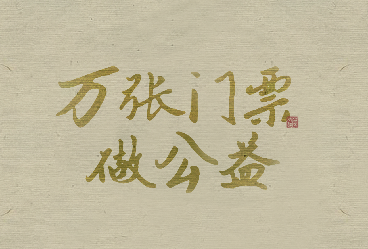 万张门票
做公益